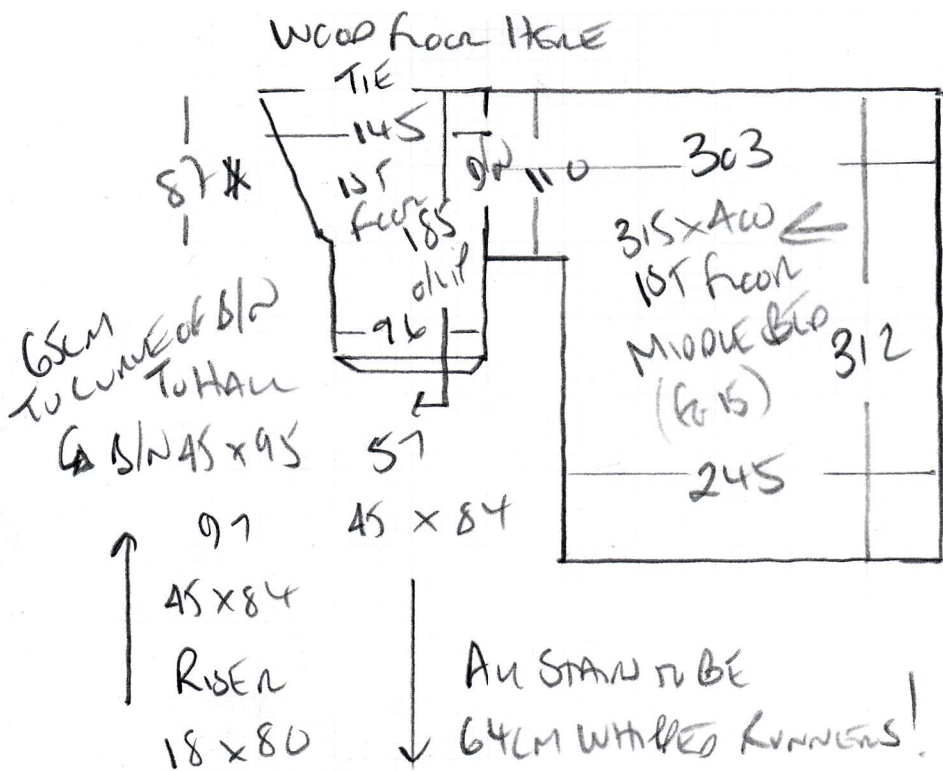 WOOD FLOOR HERE
TIE
145
87*
1ST
FLOOR
185
O/HP
D/N
110
303
315 X 400
1ST FLOOR
MIDDLE BED
312
96
65CM
TO CURVE OF B/N
TO HALL
B/N 45 X 95
57
245
97
45 X 84
45 X 84
RISER
18 X 80
ALL STAIRS TO BE
64CM WHIPPED RUNNERS!